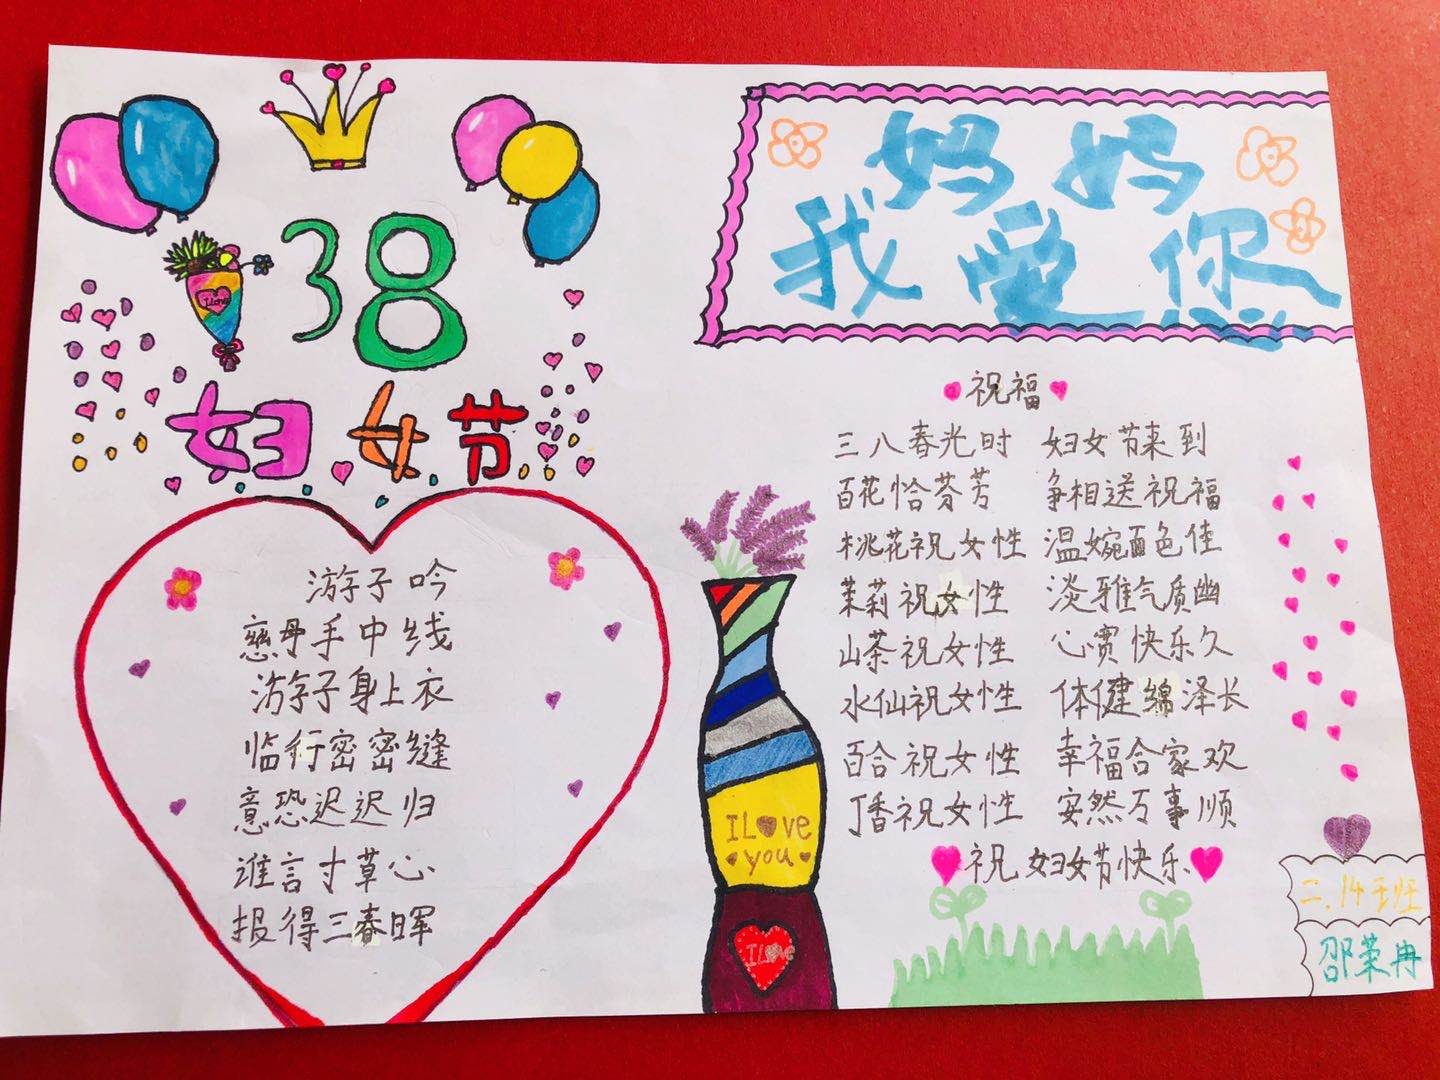 38
妇女节
I Love
游子吟
慈母手中线
游子身上衣
临行密密缝
意恐迟迟归
谁言寸草心
报得三春晖
妈妈
我爱您
祝福
三八春光时 妇女节来到
百花恰芬芳 争相送祝福
桃花祝女性 温婉面色佳
茉莉祝女性 淡雅气质幽
山茶祝女性 心宽快乐久
水仙祝女性 体健绵泽长
百合祝女性 幸福合家欢
丁香祝女性 安然万事顺
祝妇女节快乐
I Love
you
I Love
二.14班
邵荣冉